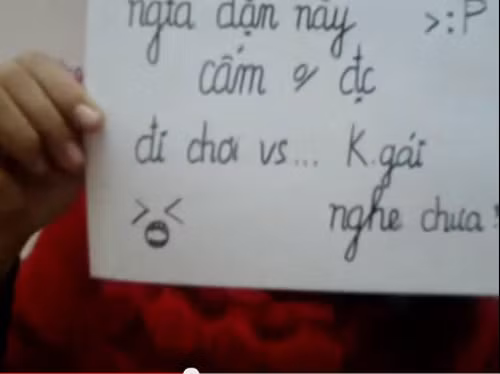 nghĩa dặn này >:P
cấm đc
đi chơi vs... K.gái
nghe chưa